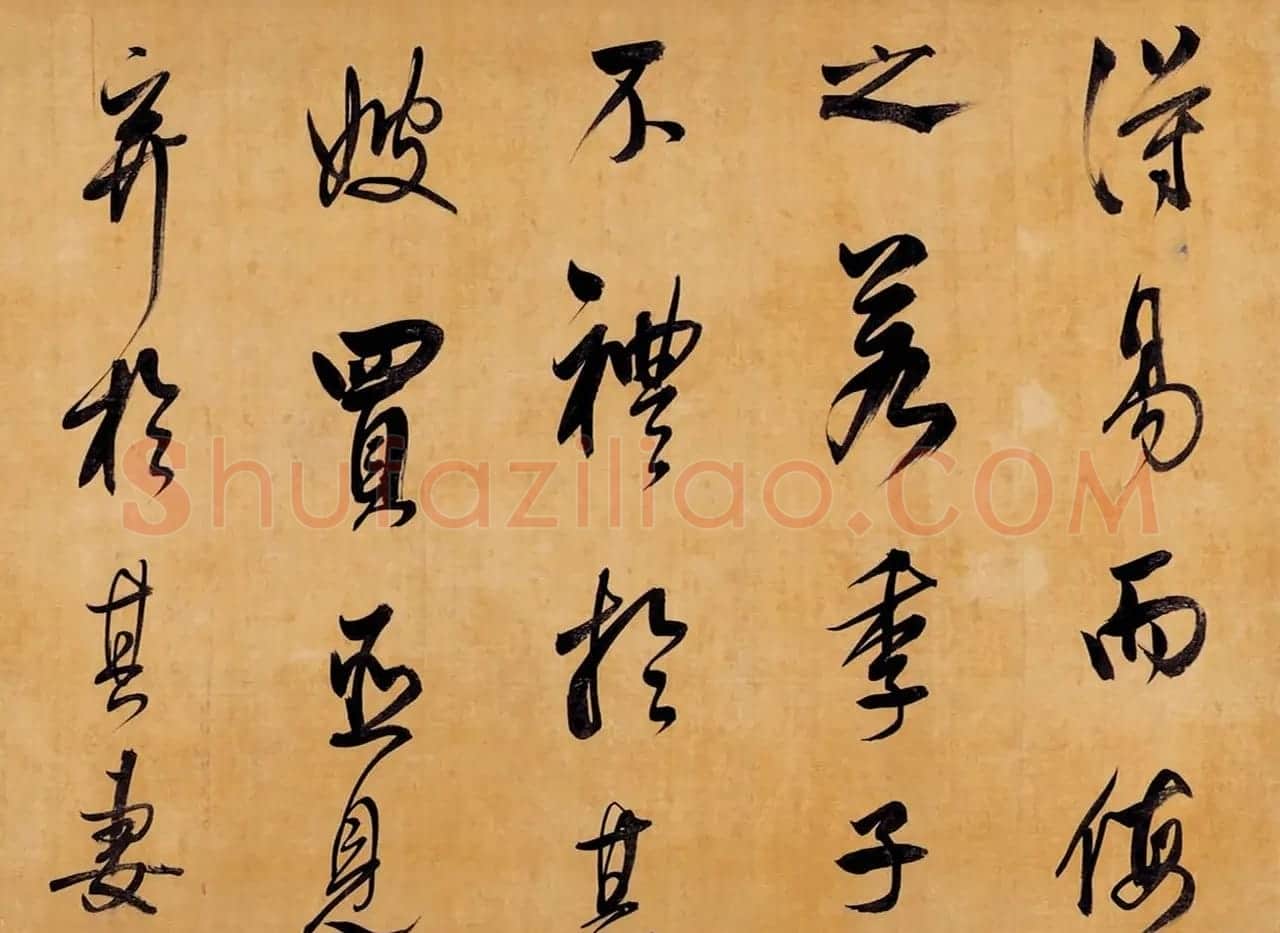 得易而侮
之若季子
不禮於其
嫂買臣見
棄於其妻
Shufaziliao.COM